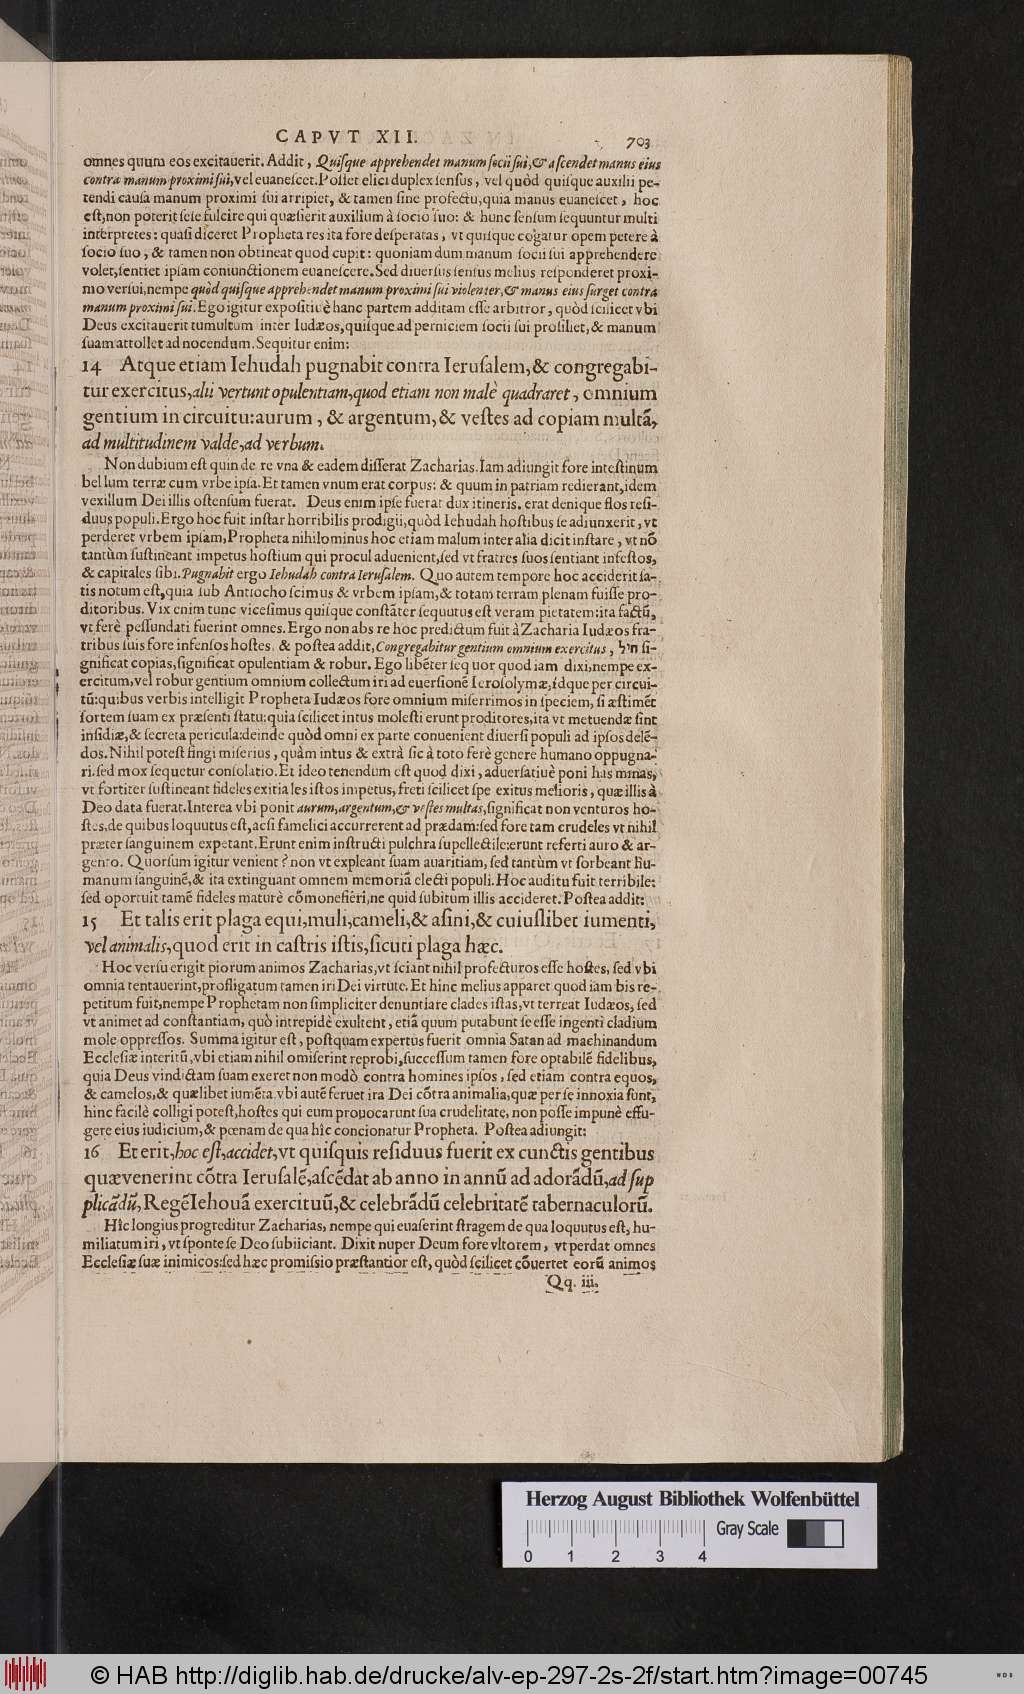 CAPVT XII. 703
omnes quum eos excitauerit. Addit, Quiſque apprehendet manum ſocii ſui, & aſcendet manus eius
contra manum proximi ſui, vel euaneſcet. Poſſet elici duplex ſenſus, vel quòd quiſque auxilii pe-
tendi cauſa manum proximi ſui arripiet, & tamen ſine profectu, quia manus euaneſcet, hoc
eſt, non poterit ſeſe fulcire qui quæſierit auxilium à ſocio ſuo: & hunc ſenſum ſequuntur multi
interpretes: quaſi diceret Propheta res ita fore deſperatas, vt quiſque cogatur opem petere à
ſocio ſuo, & tamen non obtineat quod cupit: quoniam dum manum ſocii ſui apprehendere
volet, ſentiet ipſam coniunctionem euaneſcere. Sed diuerſus ſenſus melius reſponderet proxi-
mo verſui, nempe quòd quiſque apprehendet manum proximi ſui violenter, & manus eius ſurget contra
manum proximi ſui. Ego igitur expoſitiuè hanc partem additam eſſe arbitror, quòd ſcilicet vbi
Deus excitauerit tumultum inter Iudæos, quiſque ad perniciem ſocii ſui proſiliet, & manum
ſuam attollet ad nocendum. Sequitur enim:
14 Atque etiam Iehudah pugnabit contra Ieruſalem, & congregabi-
tur exercitus, alii vertunt opulentiam, quod etiam non malè quadraret, omnium
gentium in circuitu: aurum, & argentum, & veſtes ad copiam multã,
ad multitudinem valde, ad verbum.
Non dubium eſt quin de re vna & eadem diſſerat Zacharias. Iam adiungit fore inteſtinum
bellum terræ cum vrbe ipſa. Et tamen vnum erat corpus: & quum in patriam redierant, idem
vexillum Dei illis oſtenſum fuerat. Deus enim ipſe fuerat dux itineris. erat denique flos reſi-
duus populi. Ergo hoc fuit inſtar horribilis prodigii, quòd Iehudah hoſtibus ſe adiunxerit, vt
perderet vrbem ipſam, Propheta nihilominus hoc etiam malum inter alia dicit inſtare, vt nõ
tantùm ſuſtineant impetus hoſtium qui procul aduenient, ſed vt fratres ſuos ſentiant infeſtos,
& capitales ſibi. Pugnabit ergo Iehudah contra Ieruſalem. Quo autem tempore hoc acciderit ſa-
tis notum eſt, quia ſub Antiocho ſcimus & vrbem ipſam, & totam terram plenam fuiſſe pro-
ditoribus. Vix enim tunc viceſimus quiſque conſtãter ſequutus eſt veram pietatem: ita factũ,
vt ferè peſſundati fuerint omnes. Ergo non abs re hoc predictum fuit à Zacharia Iudæos fra-
tribus ſuis fore infenſos hoſtes. & poſtea addit, Congregabitur gentium omnium exercitus, חיל ſi-
gnificat copias, ſignificat opulentiam & robur. Ego libẽter ſequor quod iam dixi, nempe ex-
ercitum, vel robur gentium omnium collectum iri ad euerſionẽ Ieroſolymæ, idque per circui-
tũ: quibus verbis intelligit Propheta Iudæos fore omnium miſerrimos in ſpeciem, ſi æſtimẽt
ſortem ſuam ex præſenti ſtatu: quia ſcilicet intus moleſti erunt proditores, ita vt metuendæ ſint
inſidiæ, & ſecreta pericula: deinde quòd omni ex parte conuenient diuerſi populi ad ipſos delẽ-
dos. Nihil poteſt fingi miſerius, quàm intus & extrà ſic à toto ferè genere humano oppugna-
ri. ſed mox ſequetur conſolatio. Et ideo tenendum eſt quod dixi, aduerſatiuè poni has minas,
vt fortiter ſuſtineant fideles exitiales iſtos impetus, freti ſcilicet ſpe exitus melioris, quæ illis à
Deo data fuerat. Interea vbi ponit aurum, argentum, & veſtes multas, ſignificat non venturos ho-
ſtes, de quibus loquutus eſt, acſi famelici accurrerent ad prædam: ſed fore tam crudeles vt nihil
præter ſanguinem expetant. Erunt enim inſtructi pulchra ſupellectile: erunt referti auro & ar-
gento. Quorſum igitur venient? non vt expleant ſuam auaritiam, ſed tantùm vt ſorbeant hu-
manum ſanguinẽ, & ita extinguant omnem memoriã electi populi. Hoc auditu fuit terribile:
ſed oportuit tamẽ fideles maturè cõmonefieri, ne quid ſubitum illis accideret. Poſtea addit:
15 Et talis erit plaga equi, muli, cameli, & aſini, & cuiuſlibet iumenti,
vel animalis, quod erit in caſtris iſtis, ſicuti plaga hæc.
Hoc verſu erigit piorum animos Zacharias, vt ſciant nihil profecturos eſſe hoſtes, ſed vbi
omnia tentauerint, profligatum tamen iri Dei virtute. Et hinc melius apparet quod iam bis re-
petitum fuit, nempe Prophetam non ſimpliciter denuntiare clades iſtas, vt terreat Iudæos, ſed
vt animet ad conſtantiam, quò intrepidè exultent, etiã quum putabunt ſe eſſe ingenti cladium
mole oppreſſos. Summa igitur eſt, poſtquam expertus fuerit omnia Satan ad machinandum
Eccleſiæ interitũ, vbi etiam nihil omiſerint reprobi, ſucceſſum tamen fore optabilẽ fidelibus,
quia Deus vindictam ſuam exeret non modò contra homines ipſos, ſed etiam contra equos,
& camelos, & quælibet iumẽta. vbi autẽ feruet ira Dei cõtra animalia, quæ per ſe innoxia ſunt,
hinc facilè colligi poteſt, hoſtes qui eum prouocarunt ſua crudelitate, non poſſe impunè effu-
gere eius iudicium, & pœnam de qua hîc concionatur Propheta. Poſtea adiungit:
16 Et erit, hoc eſt, accidet, vt quiſquis reſiduus fuerit ex cunctis gentibus
quæ venerint cõtra Ieruſalẽ, aſcẽdat ab anno in annũ ad adorãdũ, ad ſup
plicãdũ, Regẽ Iehouã exercituũ, & celebrãdũ celebritatẽ tabernaculorũ.
Hîc longius progreditur Zacharias, nempe qui euaſerint ſtragem de qua loquutus eſt, hu-
miliatum iri, vt ſponte ſe Deo ſubiiciant. Dixit nuper Deum fore vltorem, vt perdat omnes
Eccleſiæ ſuæ inimicos: ſed hæc promiſsio præſtantior eſt, quòd ſcilicet cõuertet eorũ animos
Qq. iii.
Herzog August Bibliothek Wolfenbüttel
Gray Scale
0 1 2 3 4
© HAB http://diglib.hab.de/drucke/alv-ep-297-2s-2f/start.htm?image=00745